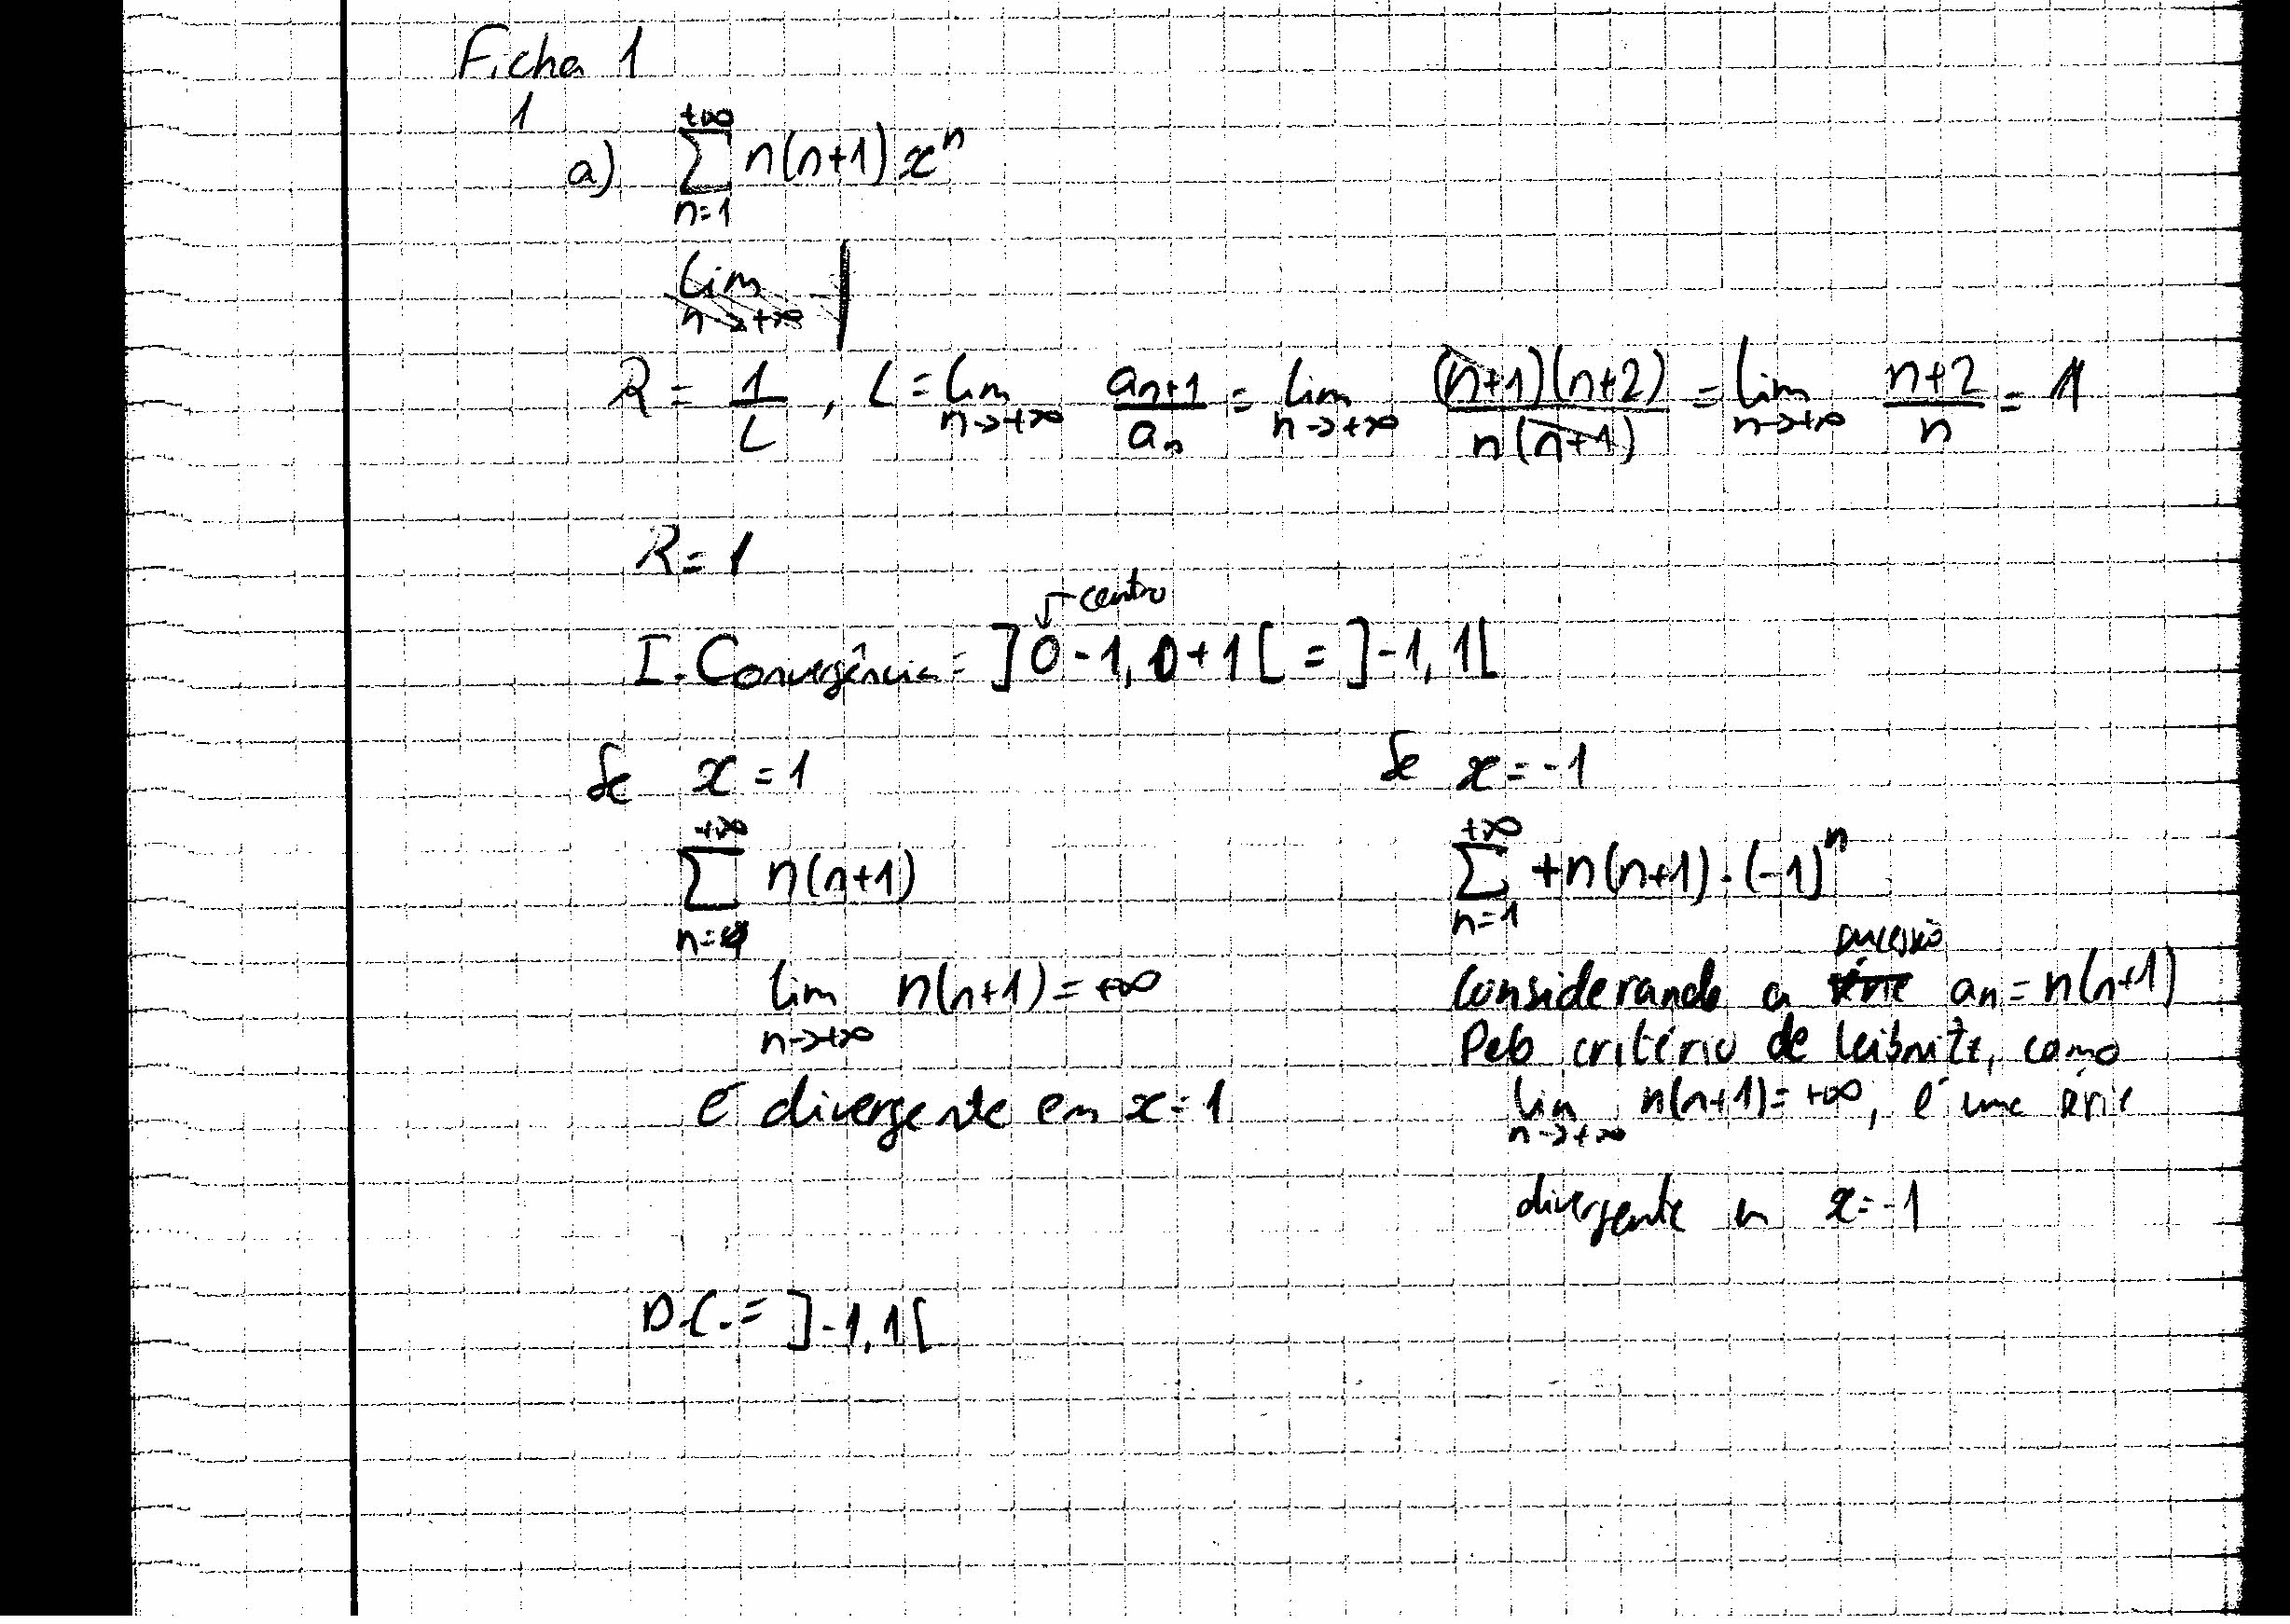 Ficha 1
1
a) \sum_{n=1}^{+\infty} n(n+1) x^n
lim n→+∞ |
R = 1/L , L = lim n→+∞ a_{n+1}/a_n = lim n→+∞ (n+1)(n+2)/n(n+1) = lim n→+∞ n+2/n = 1
R = 1
centro
I. Convergência = ]0-1, 0+1[ = ]-1, 1[
Se x = 1
\sum_{n=1}^{+\infty} n(n+1)
lim n→+∞ n(n+1) = +∞
é divergente em x = 1
Se x = -1
\sum_{n=1}^{+\infty} +n(n+1) . (-1)^n
sucessão
Considerando a série an = n(n+1)
Pelo critério de Leibnitz, como
lim n→+∞ n(n+1) = +∞, é uma série
divergente em x = -1
D.C. = ]-1, 1[